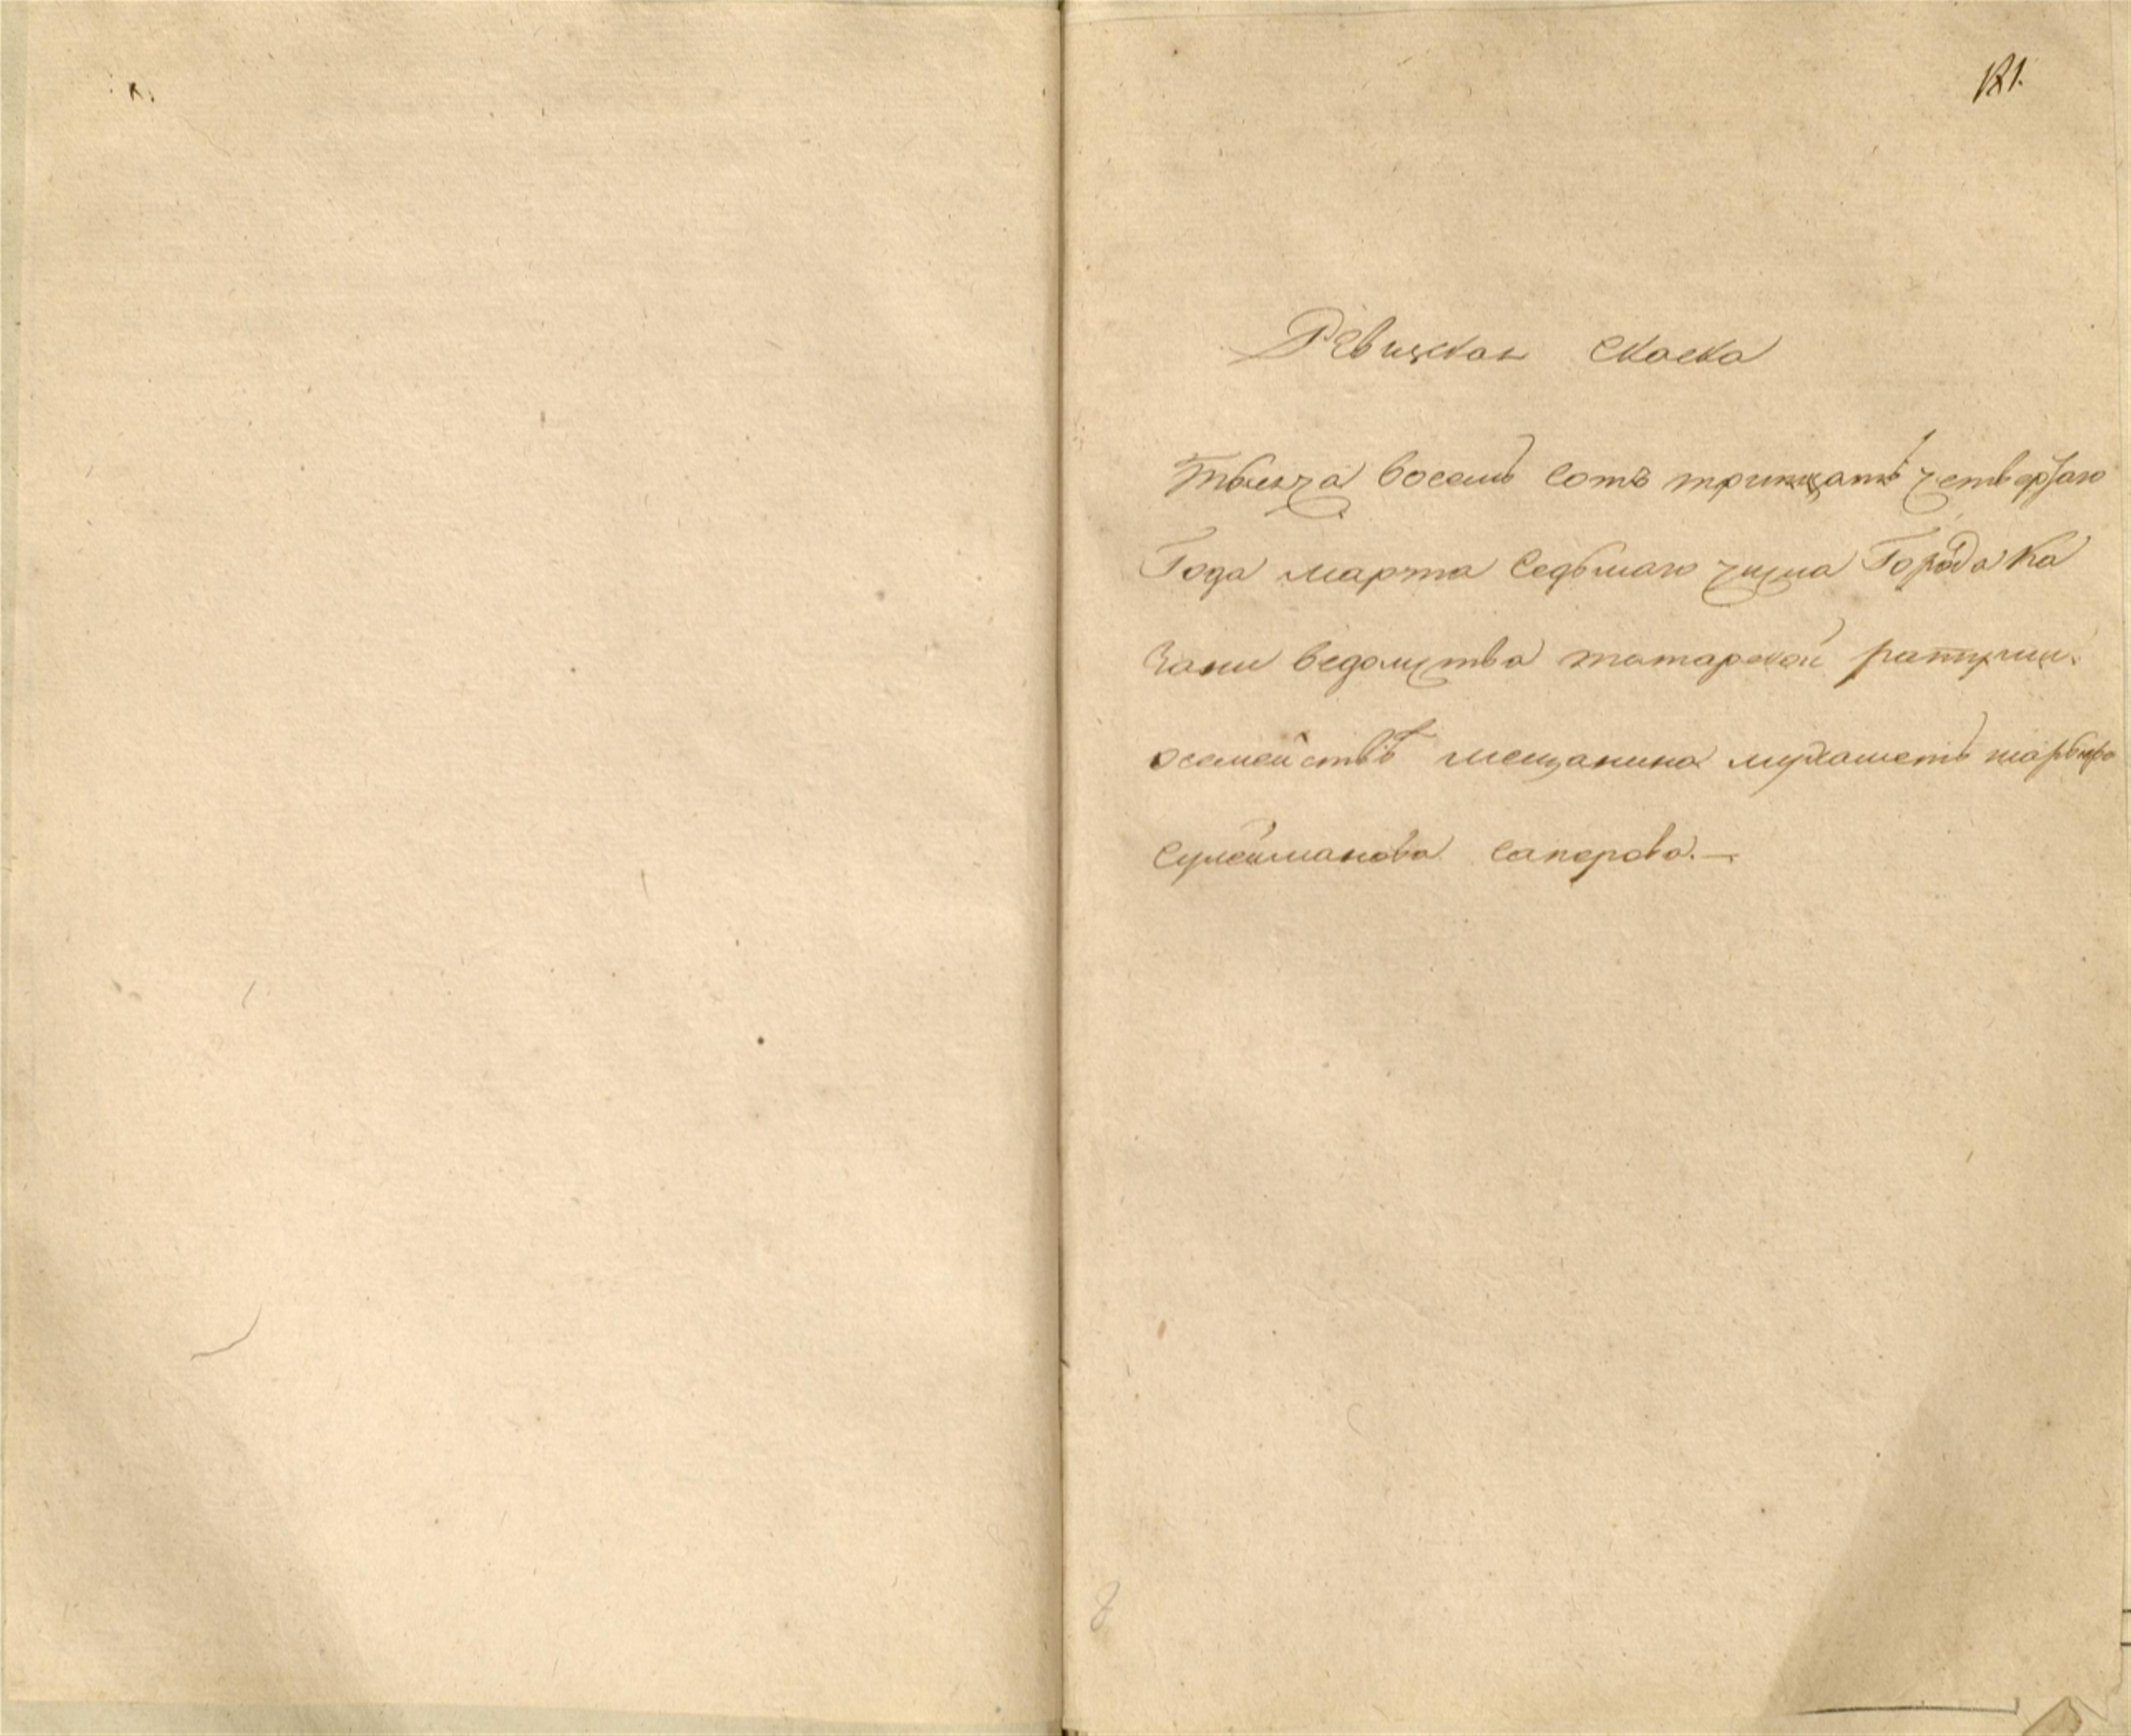 181.
Ревижская скаска
Тысеча восемь сотъ тритцать четвертаго
Года марта седьмаго числа Города Ка
зани ведомства татарской ратуши.
осемействѣ мещанина мухаметь
Сулейманова Саперова.—